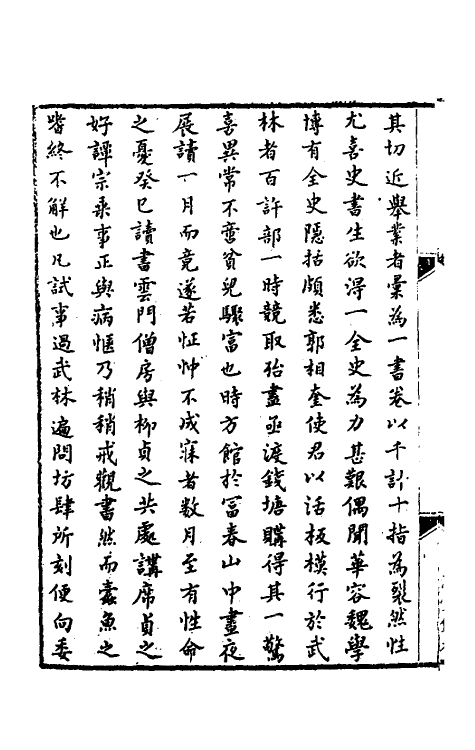 其切近舉業者彙為一書卷以千計十指為裂然性
尤喜史書生欲得一全史為力甚艱偶聞華容魏學
博有全史隱括頗悉郭相奎使君以活板模行於武
林者百許部一時競取殆盡亟渡錢塘購得其一驚
喜異常不啻貧兒驟富也時方館於富春山中晝夜
展讀一月而竟遂若怔忡不成寐者數月至有性命
之憂癸巳讀書雲門僧房與柳貞之共處講席貞之
好譚宗乘事正與病愜乃稍稍戒觀書然而蠹魚之
嗜終不解也凡試事過武林遍問坊肆所刻便向委